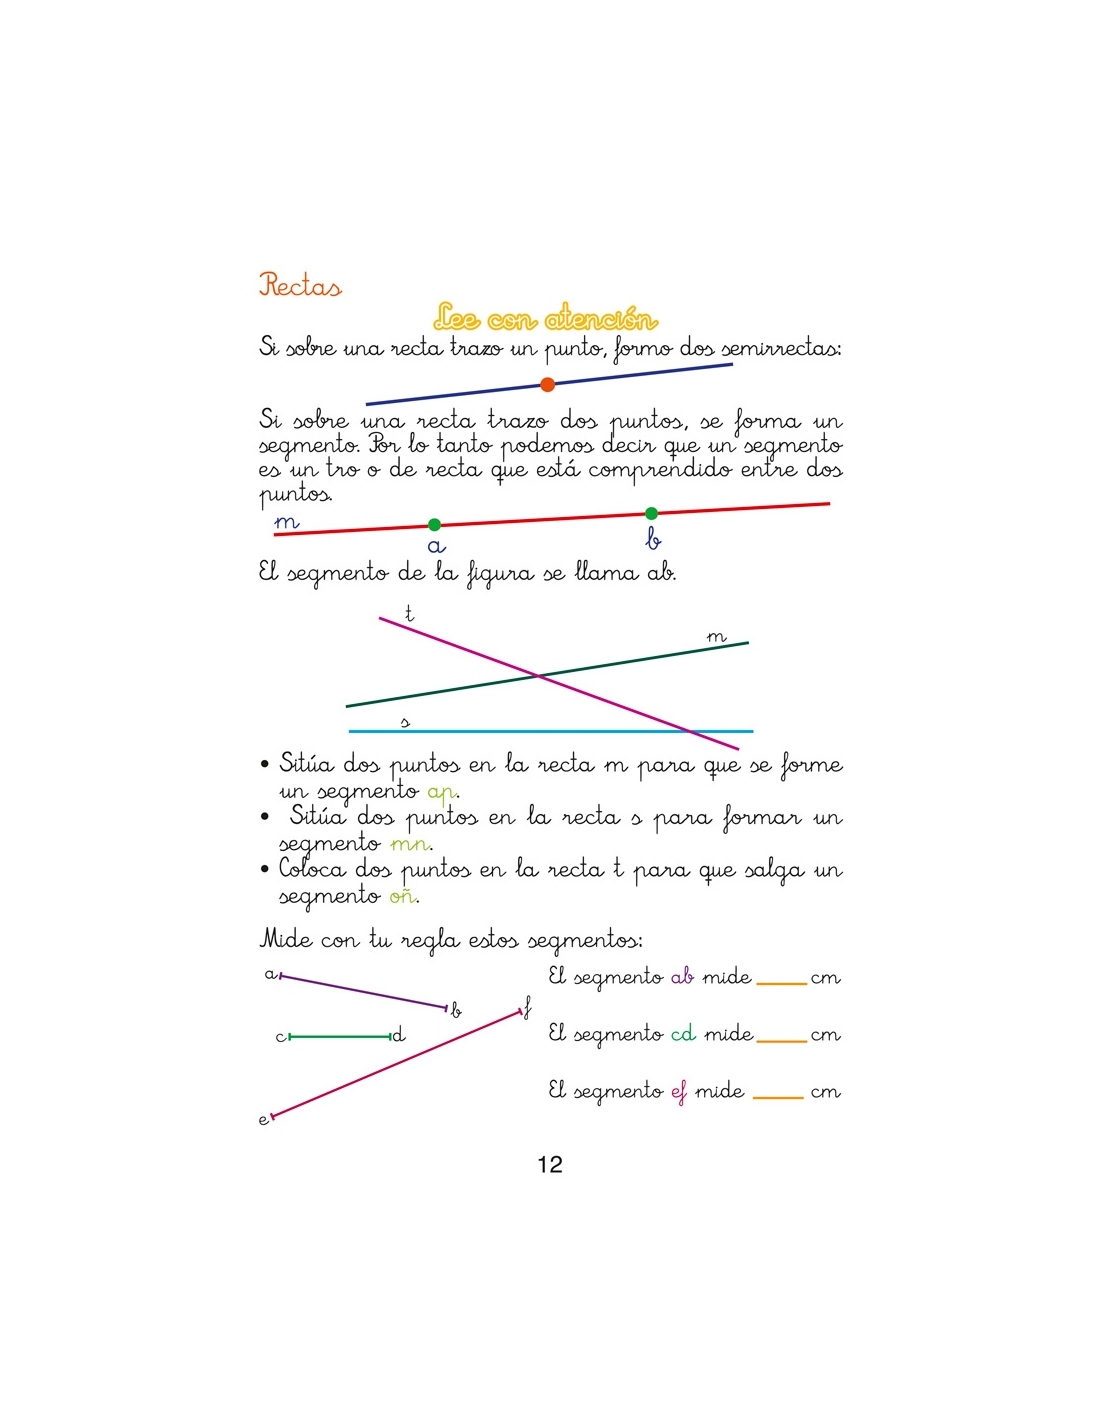 Rectas
Lee con atención
Si sobre una recta trazo un punto, formo dos semirrectas:
Si sobre una recta trazo dos puntos, se forma un
segmento. Por lo tanto podemos decir que un segmento
es un tro o de recta que está comprendido entre dos
puntos.
m
a b
El segmento de la figura se llama ab.
t
m
s
• Sitúa dos puntos en la recta m para que se forme
un segmento ap.
• Sitúa dos puntos en la recta s para formar un
segmento mn.
• Coloca dos puntos en la recta t para que salga un
segmento oñ.
Mide con tu regla estos segmentos:
a
b
c d
f
e
El segmento ab mide ____ cm
El segmento cd mide ____ cm
El segmento ef mide ____ cm
12